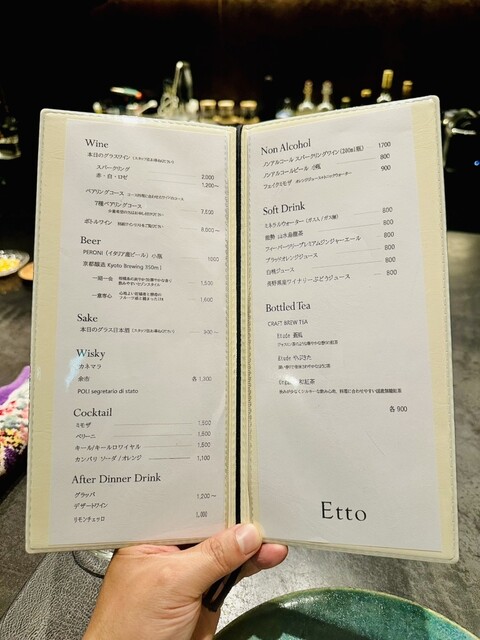 Wine
本日のグラスワイン (スタッフにお尋ねください)
スパークリング 2,000
赤・白・ロゼ 1,200～
ペアリングコース
7種ペアリングコース 7,500
ボトルワイン 8,800～
Beer
PERONI (イタリア産ビール) 小瓶 1000
京都醸造 Kyoto Brewing 350ml
一期一会 1,500
一意専心 1,600
Sake
本日のグラス日本酒 (スタッフにお尋ねください) 900～
Wisky
カネマラ
余市 各 1,300
POLI segretario di stato
Cocktail
ミモザ 1,500
ベリーニ 1,500
キール/キールロワイヤル 1,500
カンパリ ソーダ / オレンジ 1,100
After Dinner Drink
グラッパ 1,200～
デザートワイン
リモンチェッロ 1,000
Non Alcohol
ノンアルコール スパークリングワイン (280ml瓶) 1700
ノンアルコールビール 小瓶 800
フェイクミモザ 900
Soft Drink
ミネラルウォーター (ガス入 / ガス無) 800
山生烏龍茶 800
フィーバーツリープレミアムジンジャーエール 800
ブラッドオレンジジュース 800
白桃ジュース 800
ワイナリーぶどうジュース 800
Bottled Tea
CRAFT BREW TEA
Etude
Etude やぶきた
和紅茶
各 900
Etto